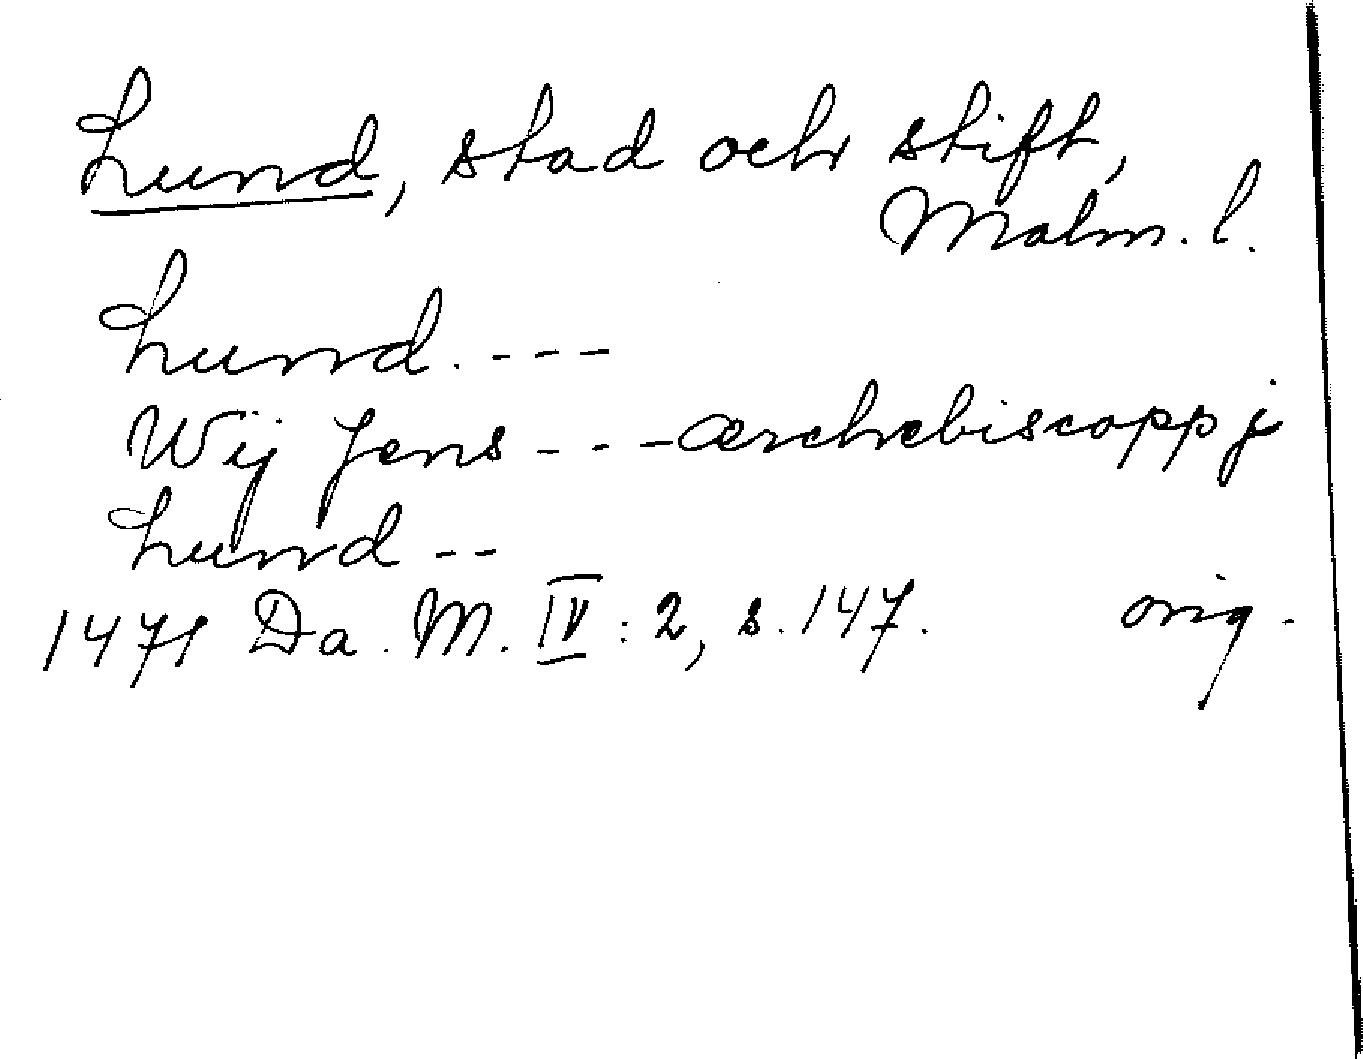 Lund, stad och stift,
Malm. l.
Lund. ---
Wij Jens --- ærchebiscopp j
Lund --
1471 Da. M. IV : 2, s. 147. orig.